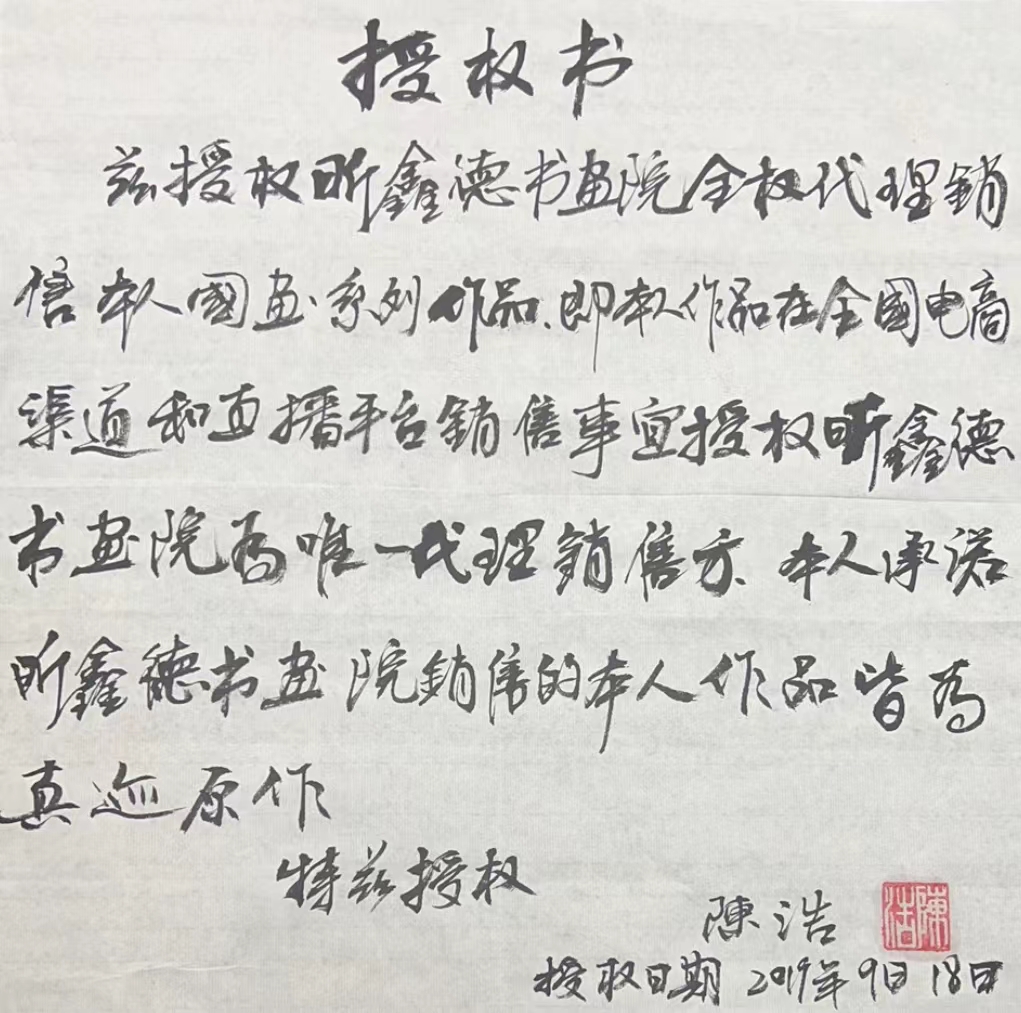 授权书
兹授权昕鑫德书画院全权代理銷
售本人國画系列作品、即本人作品在全國电商
渠道和直播平台銷售事宜授权昕鑫德
书画院为唯一代理銷售方、本人承诺
昕鑫德书画院銷售的本人作品皆为
真迹原作
特兹授权
陳浩
陳浩
授权日期 2019年9日18日